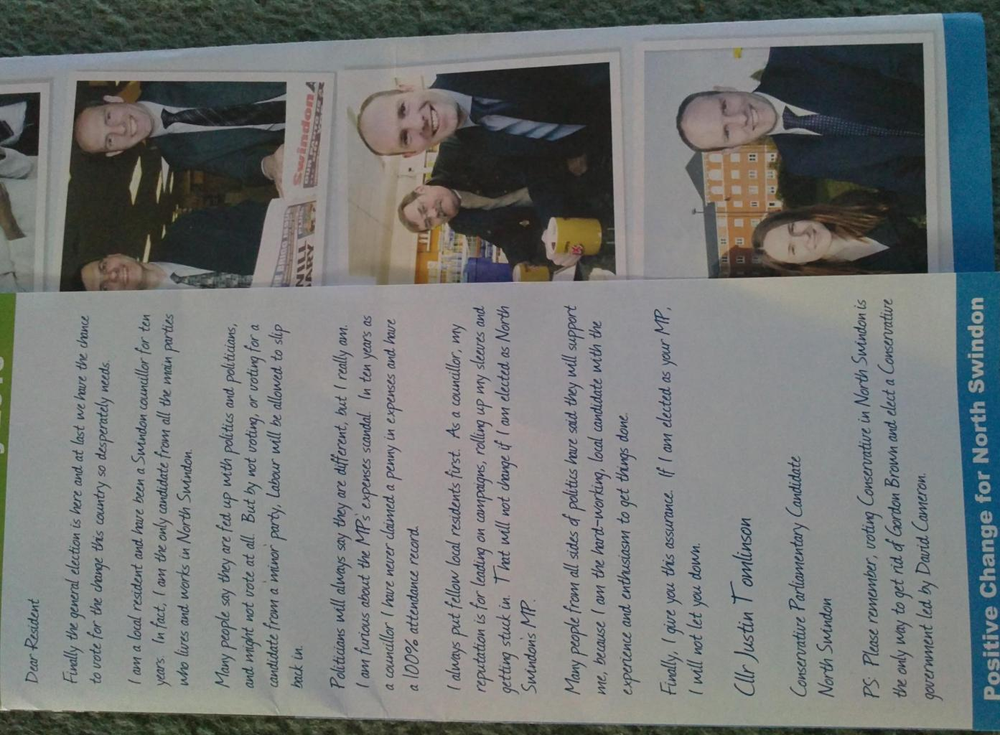 Dear Resident
Finally the general election is here and at last we have the chance
to vote for the change this country so desperately needs.
I am a local resident and have been a Swindon councillor for ten
years. In fact, I am the only candidate from all the main parties
who lives and works in North Swindon.
Many people say they are fed up with politics and politicians,
and might not vote at all. But by not voting, or voting for a
candidate from a minor party, Labour will be allowed to slip
back in.
Politicians will always say they are different, but I really am.
I am furious about the MP's expenses scandal. In ten years as
a councillor I have never claimed a penny in expenses and have
a 100% attendance record.
I always put fellow local residents first. As a councillor, my
reputation is for leading on campaigns, rolling up my sleeves and
getting stuck in. That will not change if I am elected as North
Swindon's MP.
Many people from all sides of politics have said they will support
me, because I am the hard-working, local candidate with the
experience and enthusiasm to get things done.
Finally, I give you this assurance. If I am elected as your MP,
I will not let you down.
Cllr Justin Tomlinson
Conservative Parliamentary Candidate
North Swindon
PS Please remember, voting Conservative in North Swindon is
the only way to get rid of Gordon Brown and elect a Conservative
government led by David Cameron.
Positive Change for North Swindon
Swindon